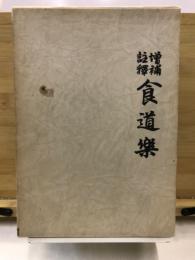 増補
註釋
食道樂